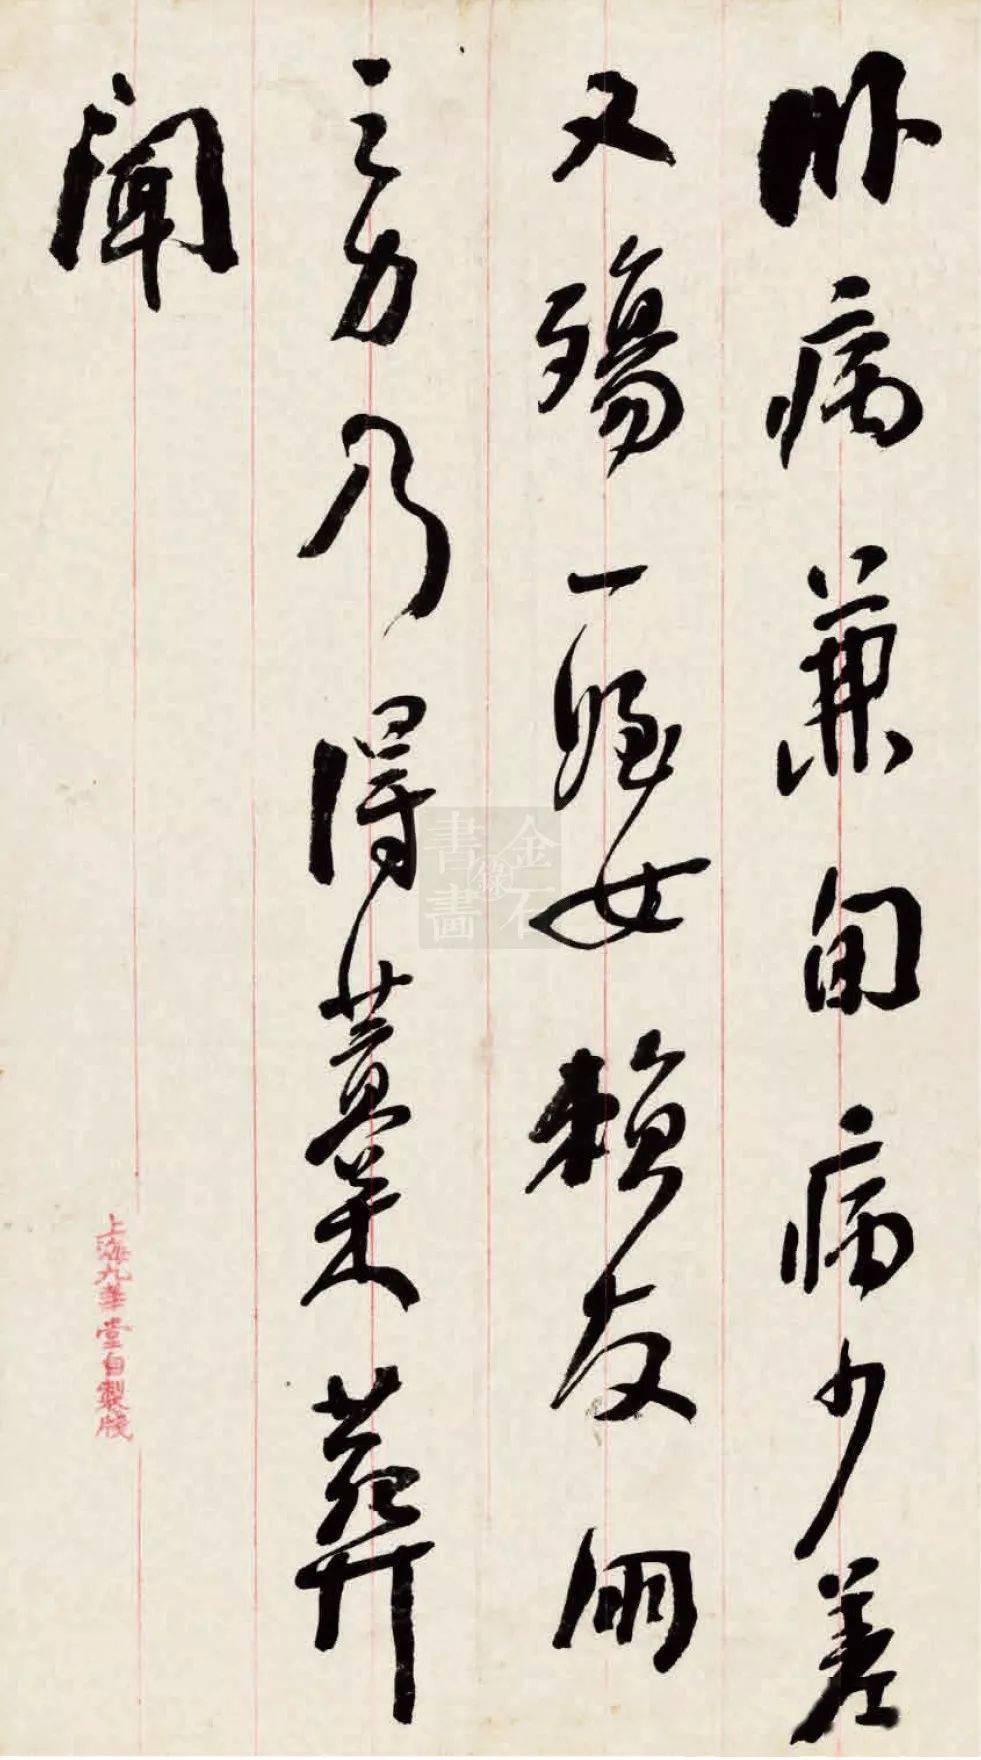 臥病兼旬病少差
又殤一姪女賴友朋
之力乃得蕆葬
聞
上海九華堂自製牋
金石書畫錄